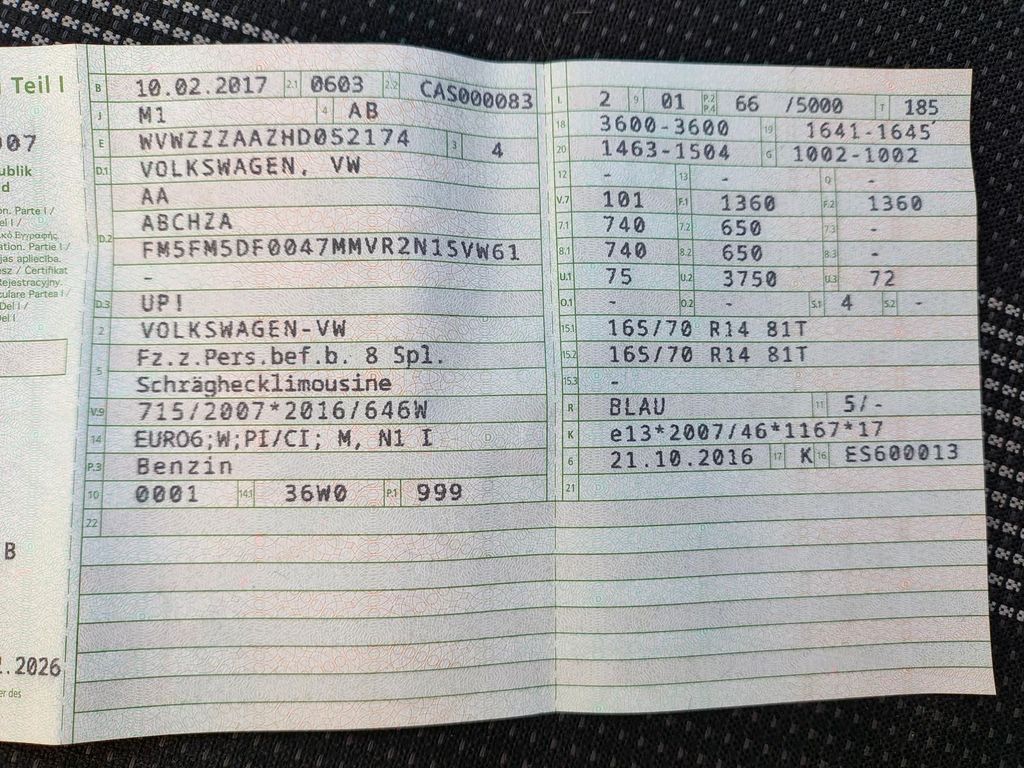 Teil I
B 10.02.2017 2.1 0603 2.2 CAS000083
J M1 4 AB
E WVWZZZAAZHD052174 3 4
D.1 VOLKSWAGEN, VW
AA
ABCHZA
D.2 FM5FM5DF0047MMVR2N15VW61
-
D.3 UP!
2 VOLKSWAGEN-VW
5 Fz.z.Pers.bef.b. 8 Spl.
Schräghecklimousine
V.9 715/2007*2016/646W
14 EURO6;W;PI/CI; M, N1 I
P.3 Benzin
10 0001 14.1 36W0 P.1 999
22
L 2 9 01 P.2 P.4 66 /5000 T 185
18 3600-3600 19 1641-1645
20 1463-1504 G 1002-1002
12 - 13 - Q -
V.7 101 F.1 1360 F.2 1360
7.1 740 7.2 650 7.3 -
8.1 740 8.2 650 8.3 -
U.1 75 U.2 3750 U.3 72
O.1 - O.2 - S.1 4 S.2 -
15.1 165/70 R14 81T
15.2 165/70 R14 81T
15.3 -
R BLAU 11 5/-
K e13*2007/46*1167*17
6 21.10.2016 17 K 16 ES600013
21
07
ublik
d
on. Parte I /
el I /
ation. Partie I /
jas apliecība.
esz / Certifikat
Rejestracyjny.
culare Partea I /
Del I /
Del I
B
.2026
er des